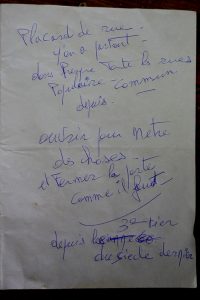 Placard de rue
y'en a partout
dans Presque toute la rues
Populaire commun
depuis.
ouvrir pour mettre
des choses
et Fermez la porte
comme il faut
3e tier
depuis le
du siècle dernier